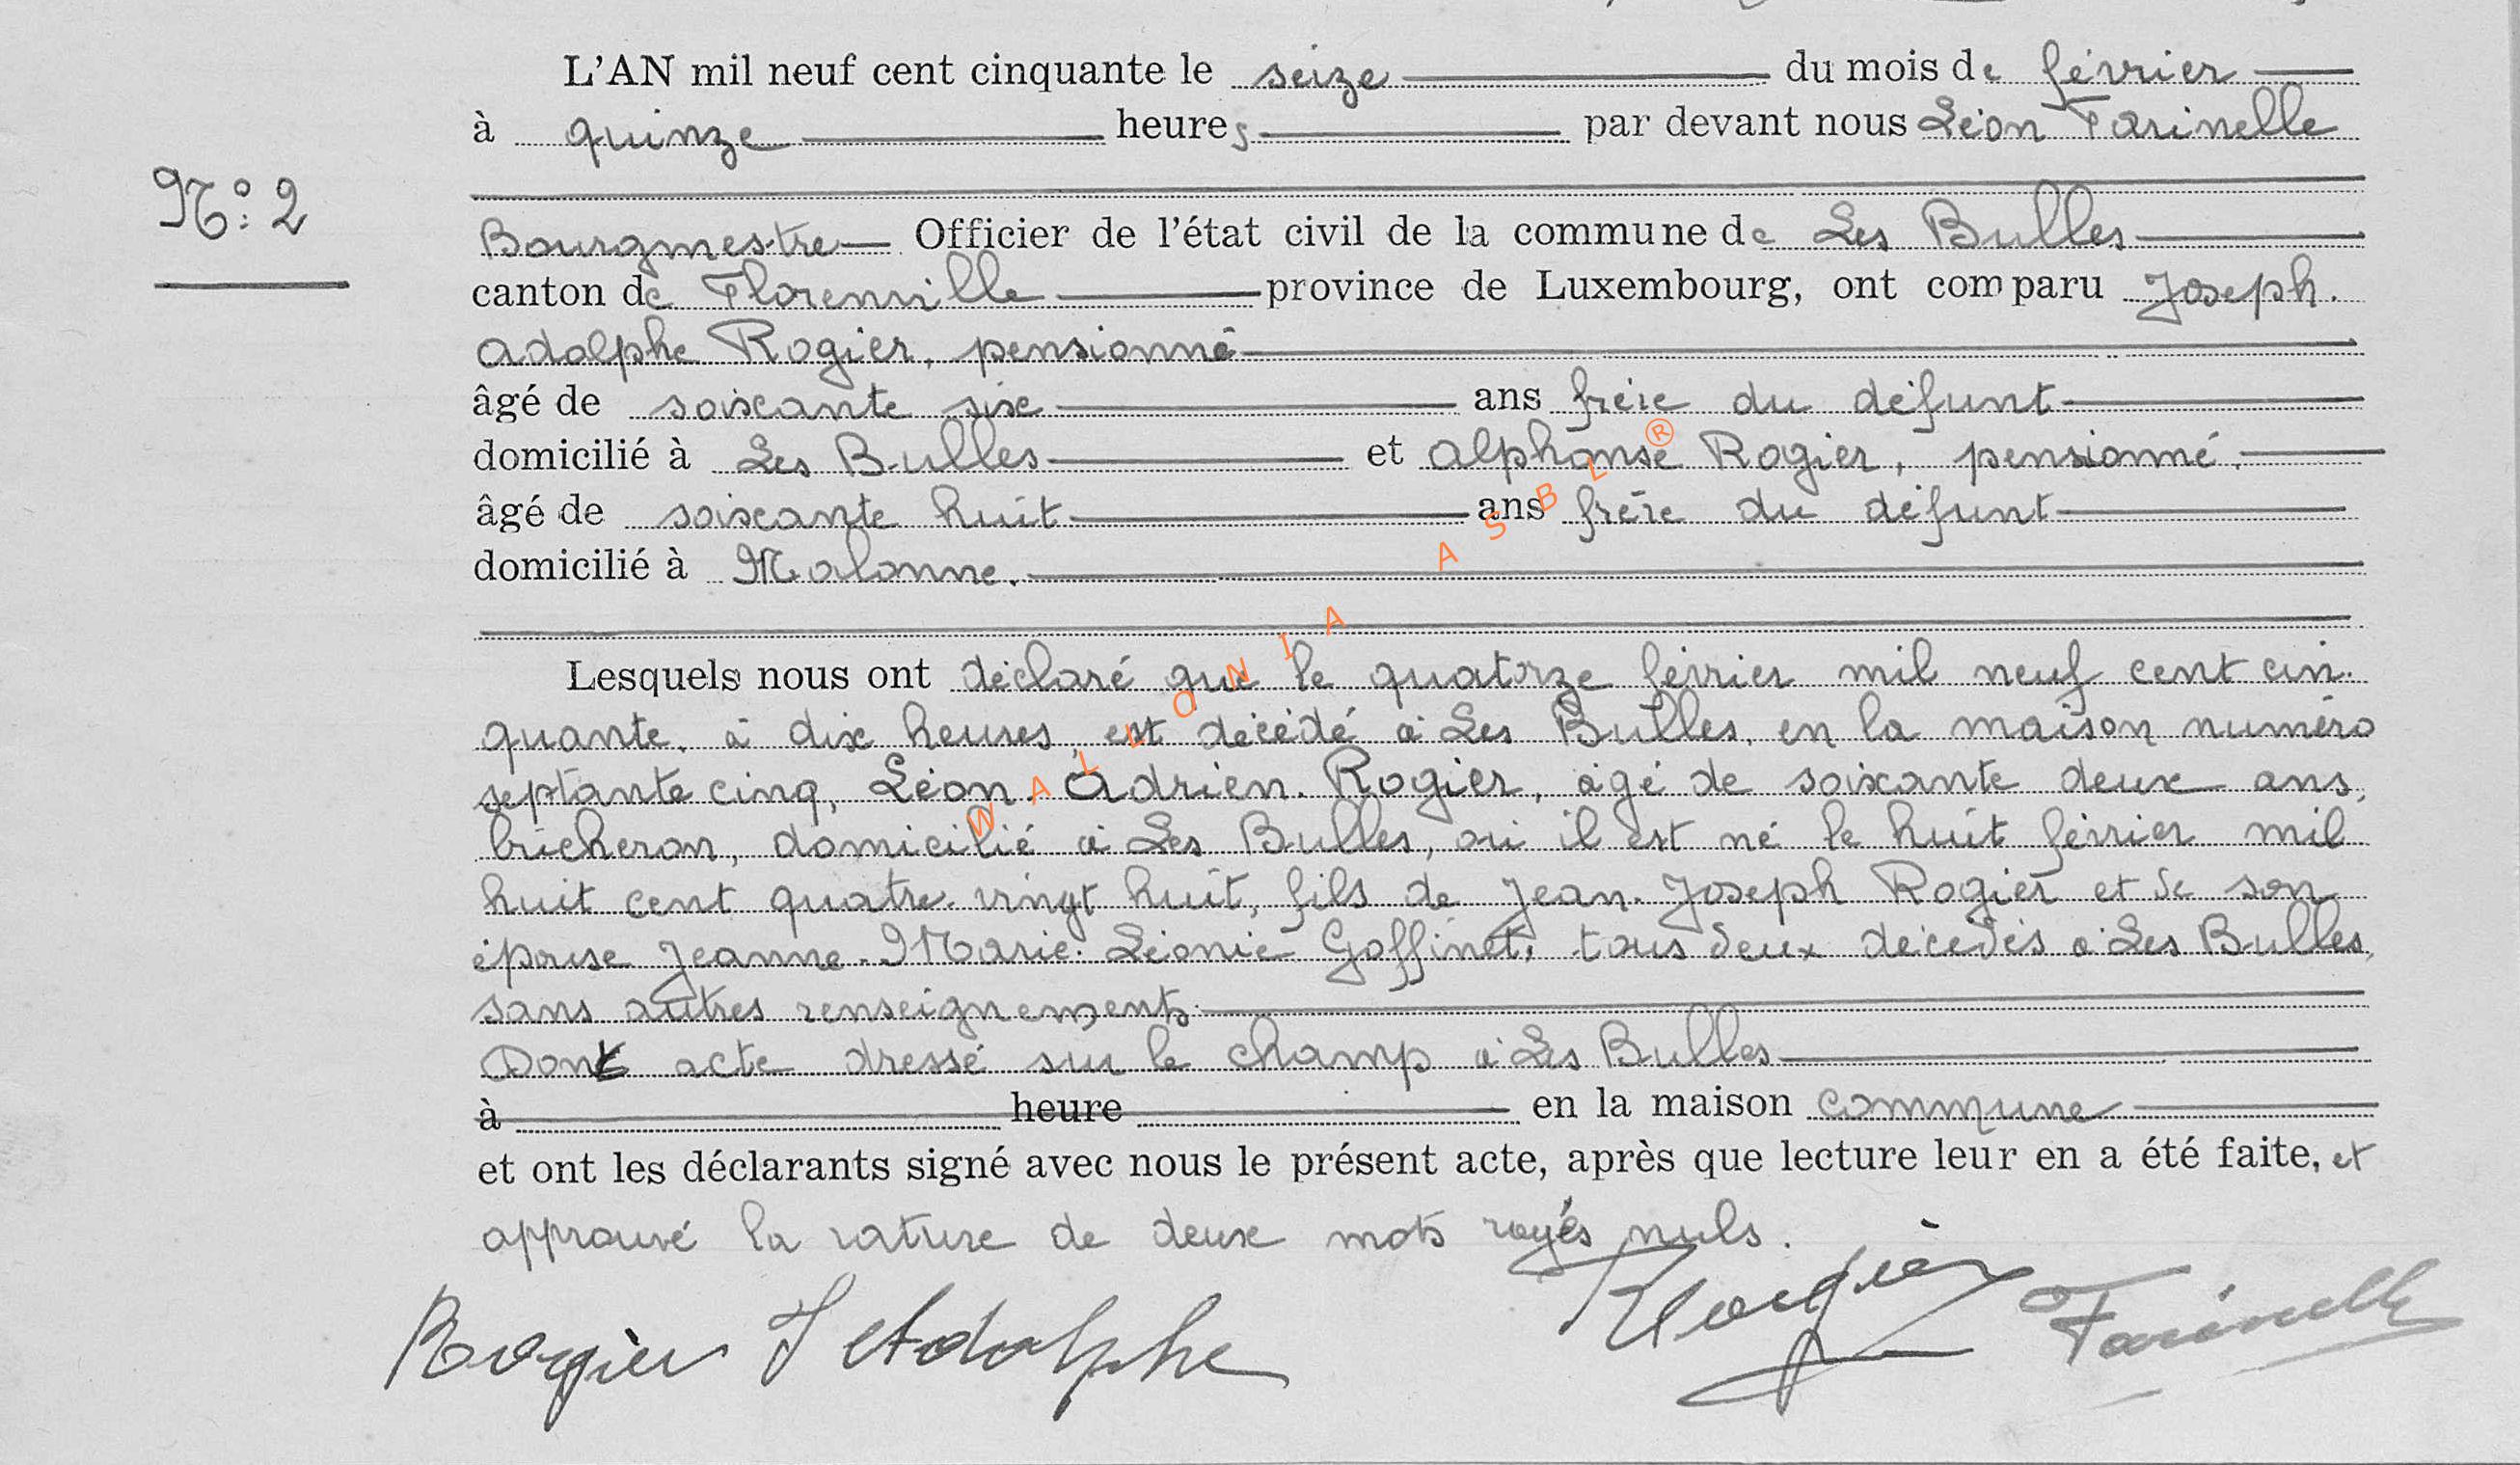 L'AN mil neuf cent cinquante le seize du mois de février
à quinze heures par devant nous Léon Farinelle
N° 2
Bourgmestre Officier de l'état civil de la commune de Les Bulles
canton de Florenville province de Luxembourg, ont comparu Joseph.
Adolphe Rogier, pensionné
âgé de soixante six ans frère du défunt
domicilié à Les Bulles et Alphonse Rogier, pensionné.
âgé de soixante huit ans frère du défunt
domicilié à Malonne.
Lesquels nous ont déclaré que le quatorze février mil neuf cent cin-
quante, à dix heures, est décédé à Les Bulles, en la maison numéro
septante cinq, Léon. Adrien. Rogier, âgé de soixante deux ans,
bûcheron, domicilié à Les Bulles, où il est né le huit février mil
huit cent quatre-vingt huit, fils de Jean-Joseph Rogier et de son
épouse Jeanne-Marie-Léonie Goffinet, tous deux décédés à Les Bulles,
sans autres renseignements.
Dont acte dressé sur le champ à Les Bulles
à heure en la maison commune
et ont les déclarants signé avec nous le présent acte, après que lecture leur en a été faite, et
approuvé la rature de deux mots rayés nuls.
Rogier J Adolphe Rogier Farinelle
WALLONIA ASBL ®